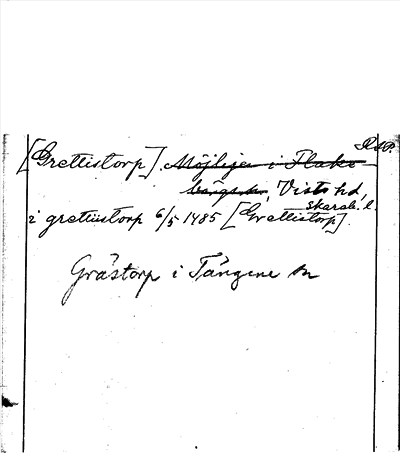 [Grettistorp]. Möjligen i Flakebergs sn, Viste hd, Skarab. l.
i gretiustorp 6/5 1485 [Grettistorp].
Grästorp i Tängene sn